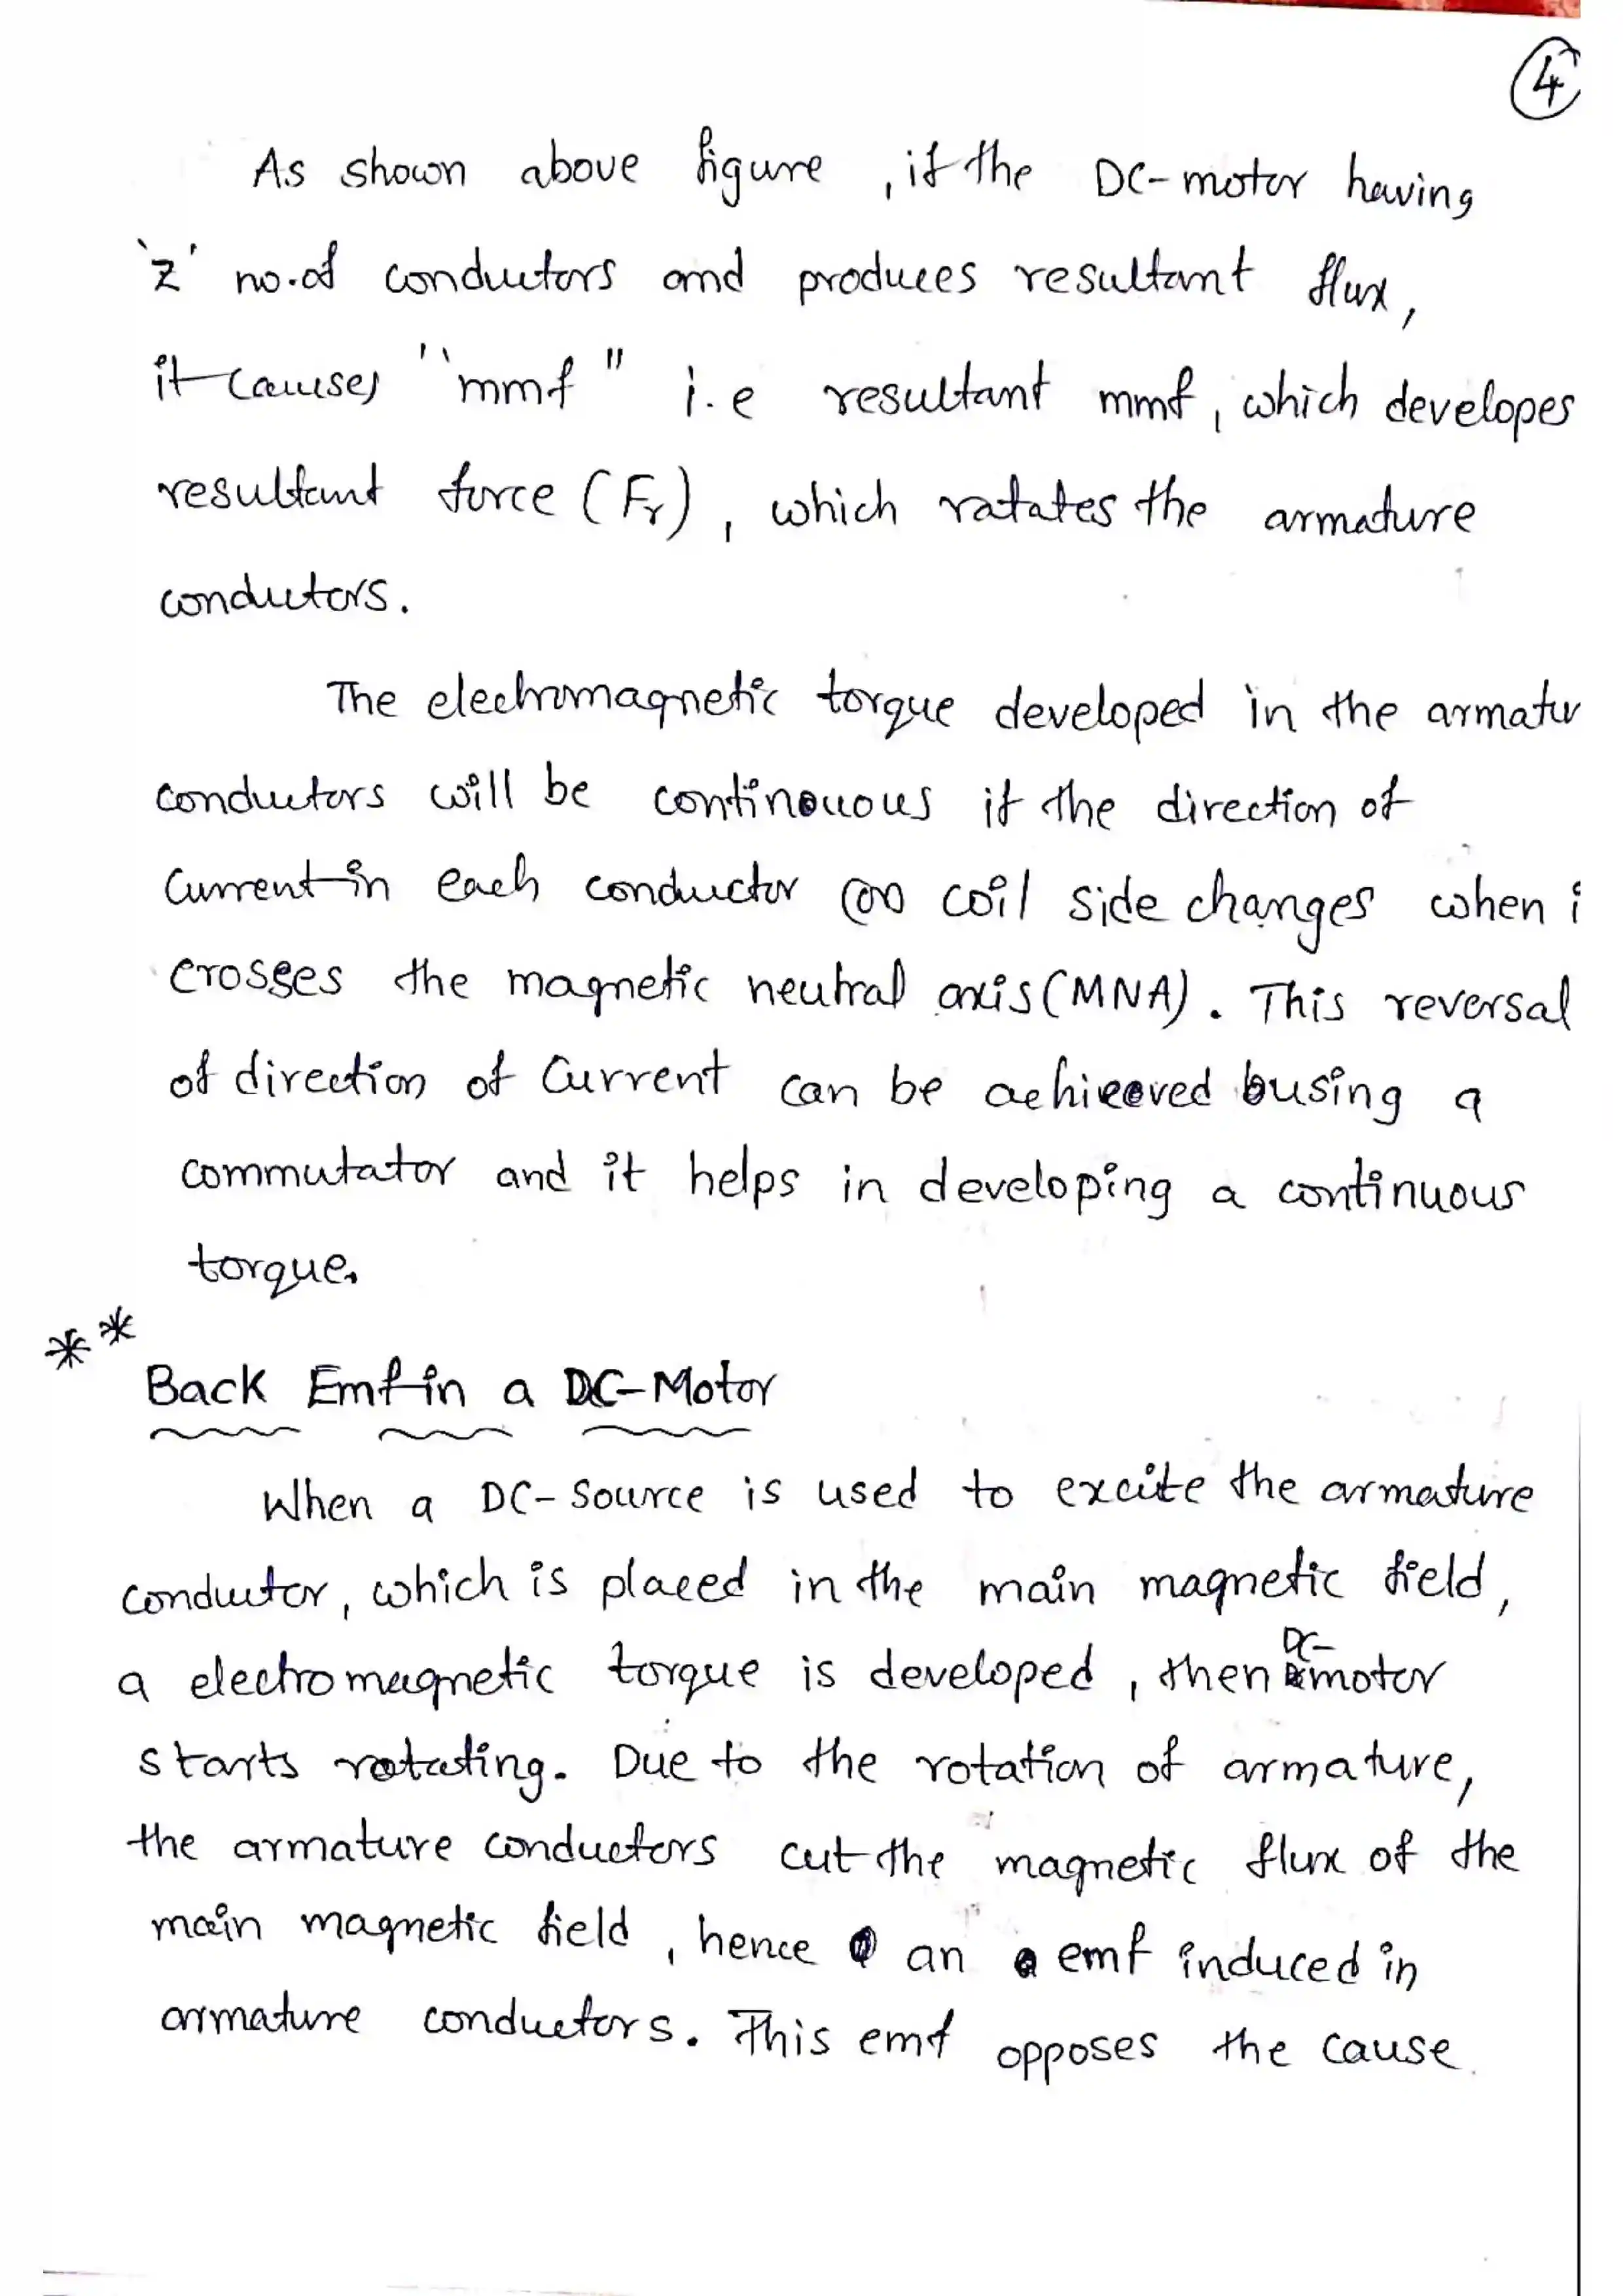 4
As shown above figure , if the DC-motor having
'z' no.of conductors and produces resultant flux,
it causes "mmf" i.e resultant mmf, which developes
resultant force (Fr), which ratates the armature
conductors.
The electromagnetic torque developed in the armatur
conductors will be continouous if the direction of
Current in each conductor (or) coil side changes when i
crosses the magnetic neutral axis (MNA). This reversal
of direction of Current can be achieeved busing a
commutator and it helps in developing a continuous
torque.
**
Back Emf in a DC-Motor
When a DC-Source is used to excite the armature
conductor, which is placed in the main magnetic field,
DC-
a electromagnetic torque is developed, then motor
starts rotating. Due to the rotation of armature,
the armature conductors cut the magnetic flux of the
main magnetic field, hence an emf induced in
armature conductors. This emf opposes the cause